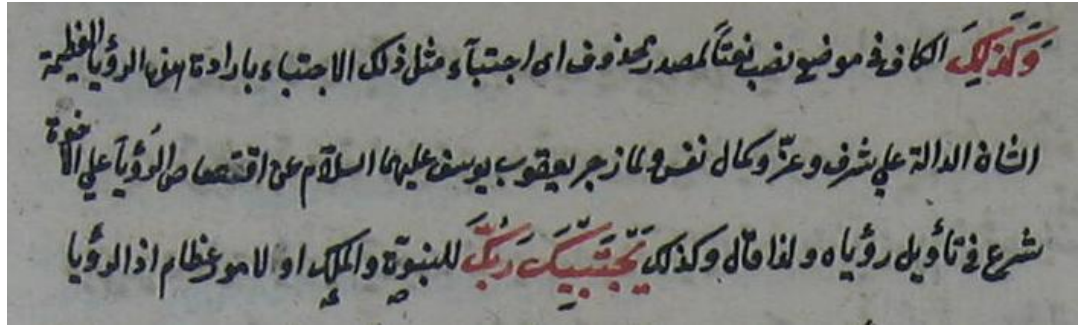 وَكَذَلِكَ الكاف في موضع نصب نعتاً لمصدر محذوف اى اجتبآء مثل ذلك الاجتباء بارادة هذه الرؤيا العظيمة
الشان الدالة علي شرف وعزّ وكمال نفس ولما زجر يعقوب يوسف عليهما السلام عن اقتصاص الرؤيا علي الاخوة
شرع في تأويل رؤياه ولذا قال وكذلك يَجْتَبِيكَ رَبُّكَ للنبوة والملك او لامور عظام اذ الرؤيا